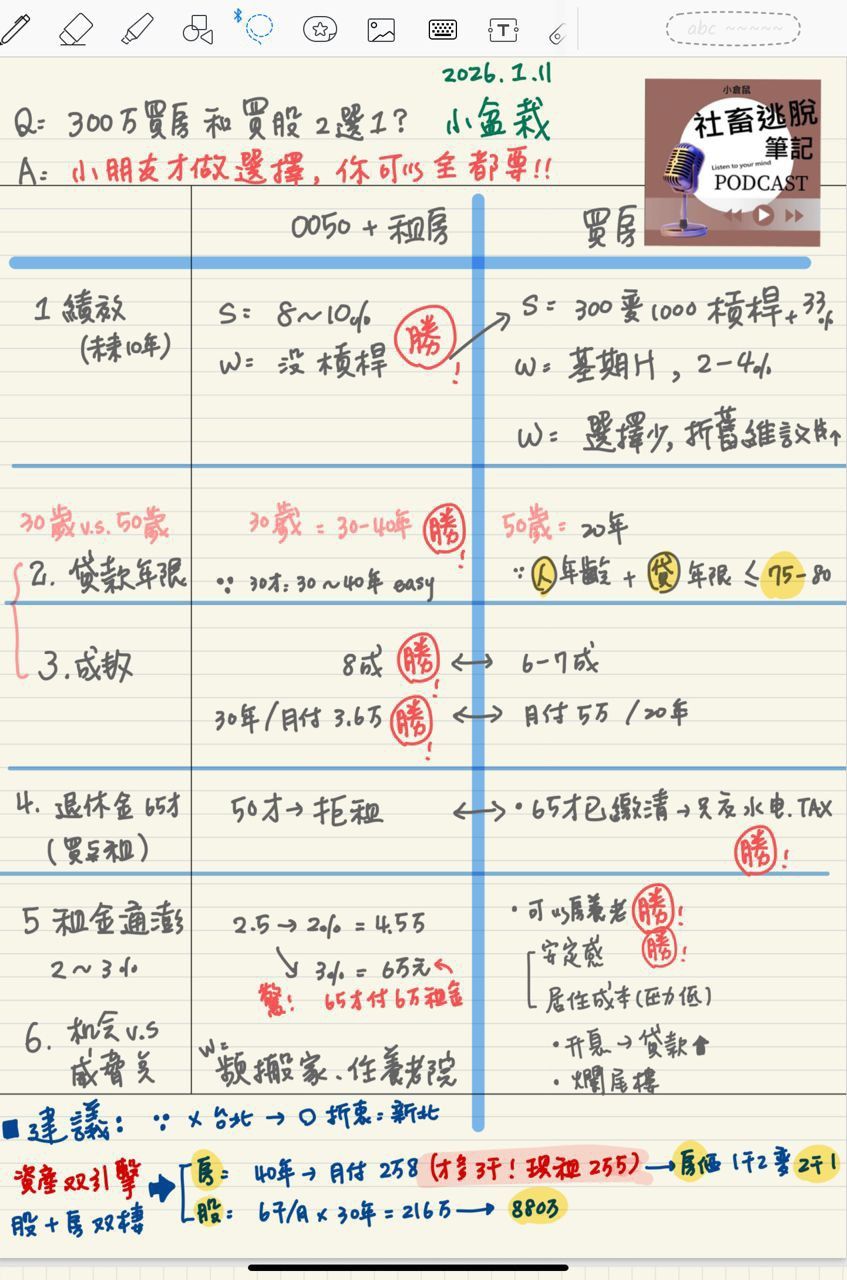 abc
2026.1.11
Q= 300万買房和買股2選1? 小盆栽
A= 小朋友才做選擇, 你可以全都要!!
小倉鼠
社畜逃脫
筆記
Listen to your mind
PODCAST
0050 + 租房 買房
1 績效
(未來10年)
S= 8~10%
W= 沒槓桿
勝!
S= 300要1000槓桿+33%
W= 基期H, 2-4%
W= 選擇少, 折舊維護
30歲 v.s. 50歲
30歲 = 30-40年 勝!
50歲= 20年
2. 貸款年限
∵ 30才: 30~40年 easy
∵ 人年齡 + 貸年限 ≤ 75-80
3. 成數
8成 勝! ↔ 6-7成
30年/月付 3.6万 勝! ↔ 月付 5万 /20年
4. 退休金 65才
(買与租)
50才→拒租 ↔ • 65才已繳清→只友水电.TAX
勝!
5 租金通澎
2~3%
2.5→2% = 4.5万
↘ 3% = 6万元
驚! 65才付6万租金
• 可以房養老 勝!
安定感 勝!
居住成本(压力低)
6. 机会 v.s
威脅
W= 頻搬家、住養老院
• 升息→貸款↑
• 爛尾樓
■建議: ∵ × 台北 → ○ 折衷=新北
資產双引擎
股+房双棲
房: 40年→月付 258 (才多3千! 現租 255) → 房価 1千2變2千1
股: 6千/月×30年=216万→ 880万